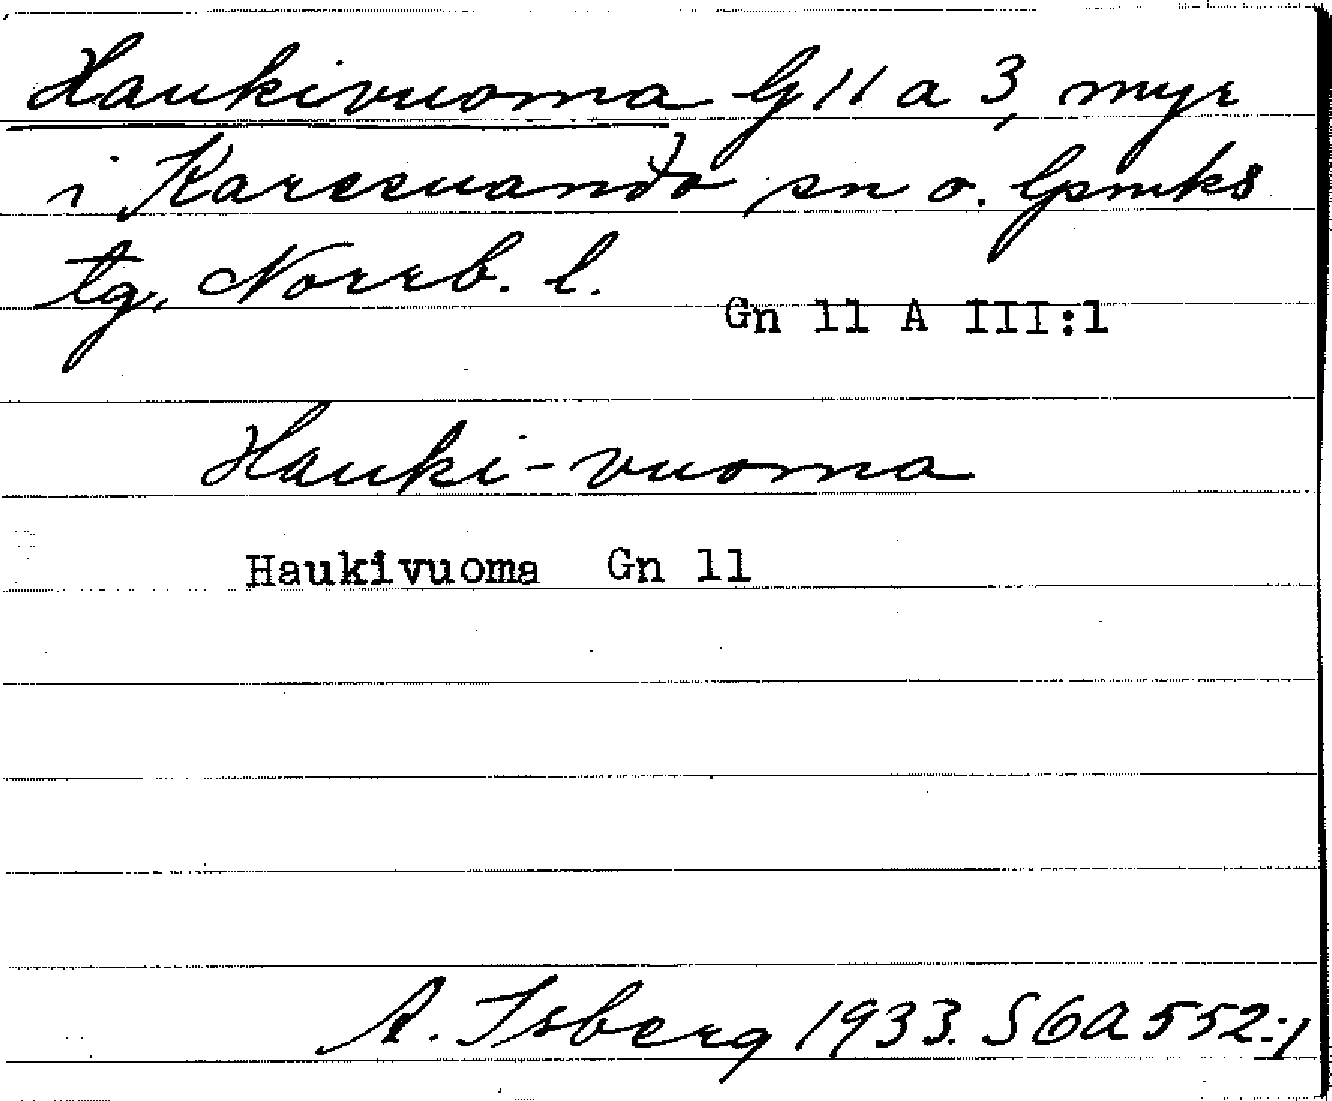 Haukivuoma G 11 a 3, myr
i Karesuando sn o. lpmks
tg, Norrb. l.
Gn 11 A III:1
Hauki-vuoma
Haukivuoma Gn 11
A. Isberg 1933. SGA 552:1